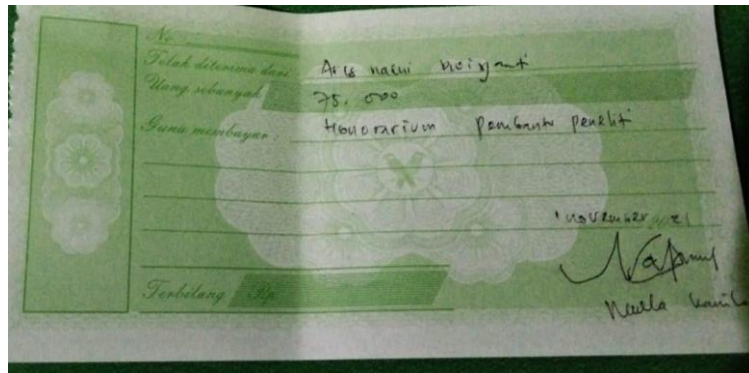 No.
Telah diterima dari
Uang sebanyak 75.000
Guna membayar : Honorarium pembantu peneliti
1 november 2021
Terbilang Rp.